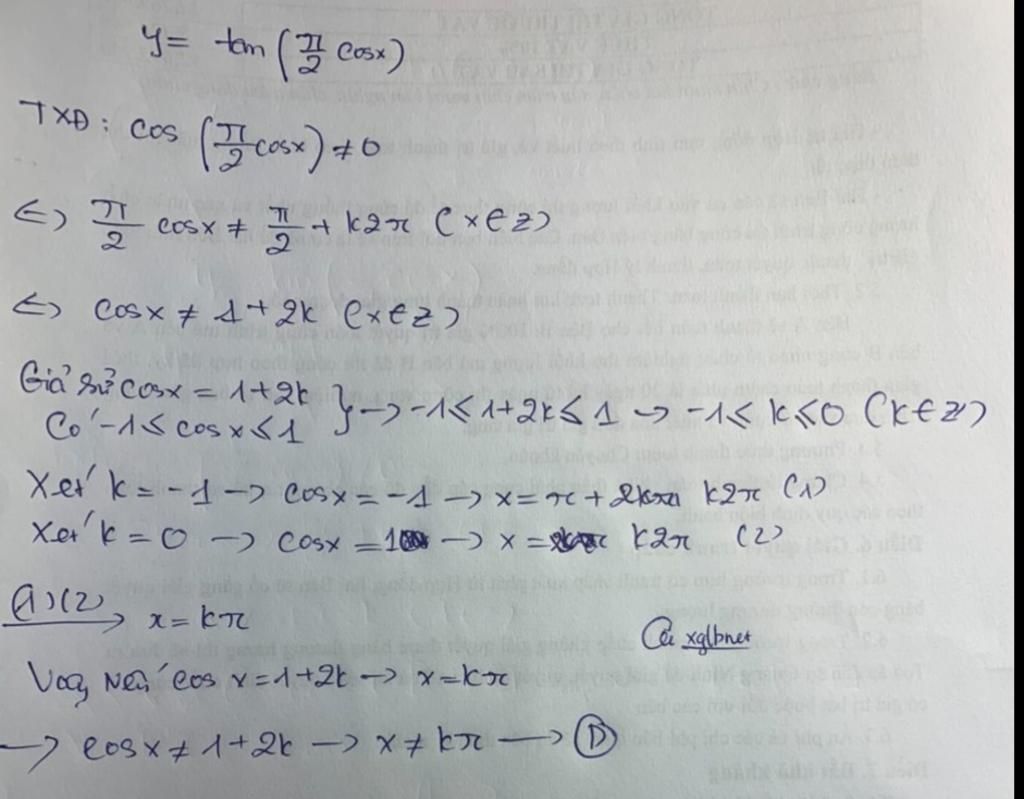 y = tan (π/2 cosx)
TXĐ: cos (π/2 cosx) ≠ 0
<=> π/2 cosx ≠ π/2 + k2π (x∈Z)
<=> cosx ≠ 1 + 2k (x∈Z)
Giả sử cosx = 1+2k
Có -1 ≤ cosx ≤ 1 } → -1 ≤ 1+2k ≤ 1 → -1 ≤ k ≤ 0 (k∈Z)
Xét k = -1 → cosx = -1 → x = π + k2π (1)
Xét k = 0 → cosx = 1 → x = k2π (2)
(1)(2) → x = kπ
@ xglbnet
Vậy Nếu cos x = 1+2k → x = kπ
→ cosx ≠ 1+2k → x ≠ kπ → D